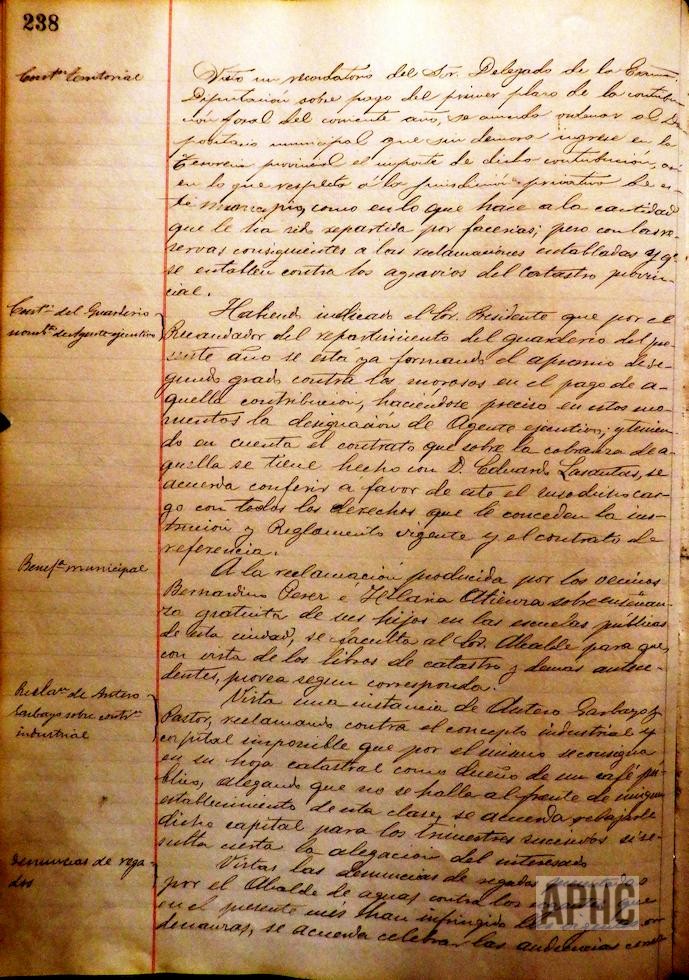 238
Contⁿ territorial
Visto un recordatorio del Sr. Delegado de la Excma.
Diputación sobre pago del primer plazo de la contribu-
ción foral del corriente año, se acuerda ordenar al De-
positario municipal que sin demora ingrese en la
Tesorería provincial el importe de dicha contribucion, así
en lo que respecta á la jurisdicción privativa de es-
te municipio, como en lo que hace a la cantidad
que le ha sido repartida por facerias; pero con las re-
servas consiguientes a las reclamaciones entabladas y qᵉ
se entablen contra los agravios del catastro provin-
cial.
Contⁿ del Guarderio
nombᵗᵒ de Agente ejecutivo
Habiendo indicado el Sor. Presidente que por el
Recaudador del repartimiento del guarderio del pre-
sente año se está ya formando el apremio de se-
gundo grado contra los morosos en el pago de a-
quella contribución, haciéndose preciso en estos mo-
mentos la designación de Agente ejecutivo; y tenien-
do en cuenta el contrato que sobre la cobranza de a-
quella se tiene hecho con D. Eduardo Lasantas, se
acuerda conferir á favor de este el susodicho car-
go con todos los derechos que le conceden la ins-
trucción y Reglamento vigente y el contrato de
referencia.
Benefᵃ municipal
A la reclamación producida por los vecinos
Bernardino Perez é Hilaria Atienza sobre enseñan-
za gratuita de sus hijos en las escuelas públicas
de esta ciudad, se faculta al Sor. Alcalde para que
con vista de los libros de catastro y demas antece-
dentes, provea segun corresponda.
Reclaⁿ de Antero
Garbayo sobre contⁿ
industrial
Vista una instancia de Antero Garbayo y
Pastor, reclamando contra el concepto industrial y
capital imponible que por el mismo se consigna
en su hoja catastral como dueño de un café pú-
blico, alegando que no se halla al frente de ningun
establecimiento de esta clase, se acuerda rebajarle
dicho capital para los trimestres sucesivos si re-
sulta cierta la alegación del interesado
denuncias de rega-
dos
Vistas las denuncias de regadas
por el Alcalde de aguas contra los que
en el presente mes han infringido las
denanzas, se acuerda celebrar las audiencias
APHC